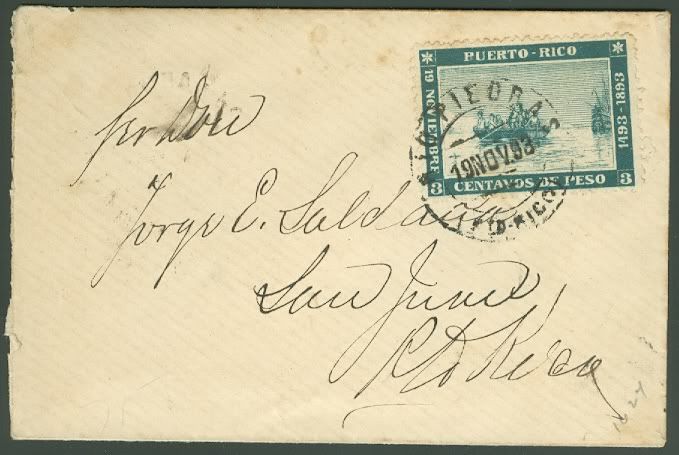 PUERTO-RICO
19 NOVIEMBRE
1493-1893
3 CENTAVOS DE PESO 3
RIO PIEDRAS
19 NOV. 93
PTO-RICO
Señor Don
Jorge E. Saldaña
San Juan
Pto Rico